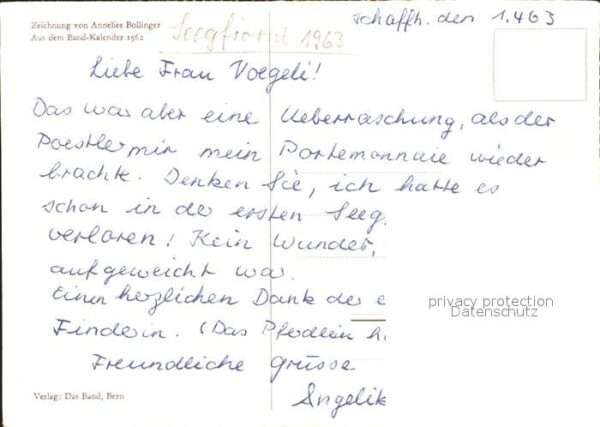 Zeichnung von Annelies Bollinger
Aus dem Band-Kalender 1962
Seegfrörni 1963
Schaffh. den 1.4.63
Liebe Frau Voegeli!
Das war aber eine Ueberraschung, als der
Poestler mir mein Portemonnaie wieder
brachte. Denken Sie, ich hatte es
schon in der ersten Seeg.
verloren! Kein Wunder,
aufgeweicht war.
Einen herzlichen Dank der e
Finderin. (Das Pfödlein h
Freundliche Grüsse
Angelik
privacy protection
Datenschutz
Verlag: Das Band, Bern